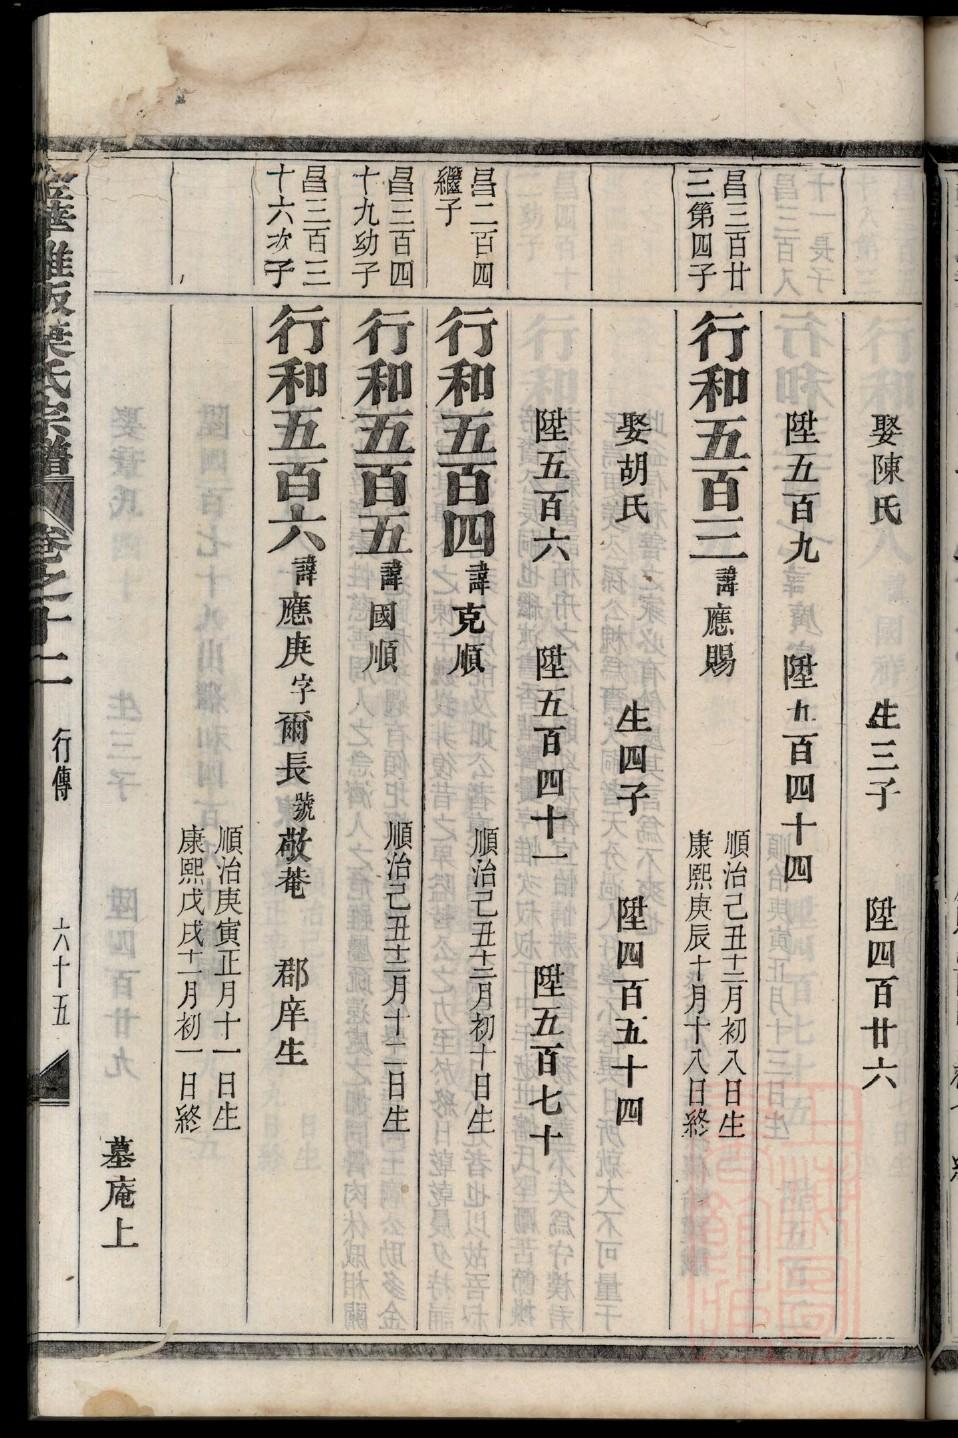 娶陳氏 生三子 陞四百廿六
陞五百九 陞九百四十四
昌三百廿三第四子
行和五百三 諱應賜 順治己丑十二月初八日生 康熙庚辰十月十八日終
娶胡氏 生四子 陞四百五十四
陞五百六 陞五百四十一 陞五百七十
昌二百四繼子
行和五百四 諱克順 順治己丑十二月初十日生
昌三百四十九幼子
行和五百五 諱國順 順治己丑十二月十二日生
昌三百三十六次子
行和五百六 諱應庚 字爾長 號敬菴 郡庠生
順治庚寅正月十一日生 康熙戊戌十二月初一日終
墓庵上
葉氏宗譜 卷之十二 行傳 六十五